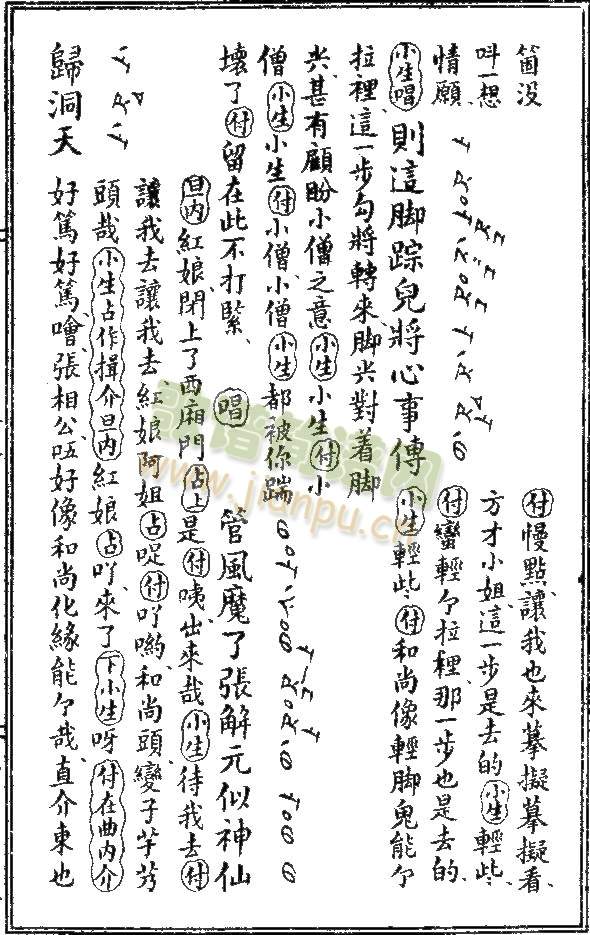 箇没 付慢點、讓我也來摹擬摹擬看、
呌一想 方才小姐、這一步是去的、小生輕些、
情願、 付蠻輕个拉裡、那一步也是去的、
小生唱則這脚踪兒將心事傳 小生輕些、付和尚像輕脚鬼能个
拉裡、這一步勾將轉來、脚尖對着脚
尖、甚有顧盼小僧之意、小生小生付小
僧小生小生付小僧、小僧小生都被你踹
壞了付留在此不打緊、 唱 管風魔了張解元似神仙
旦内紅娘、閉上了西廂門占上是付咦、出來哉、小生待我去、付
讓我去、讓我去、紅娘阿姐占啐付吖喲、和尚頭、變子芋艿
頭哉、小生占作揖介旦内紅娘占吖來了下小生呀付在曲内介
歸洞天 好篤、好篤、噲、張相公、㕶好像和尚化緣能个哉、直介東也
www.jianpu.cn